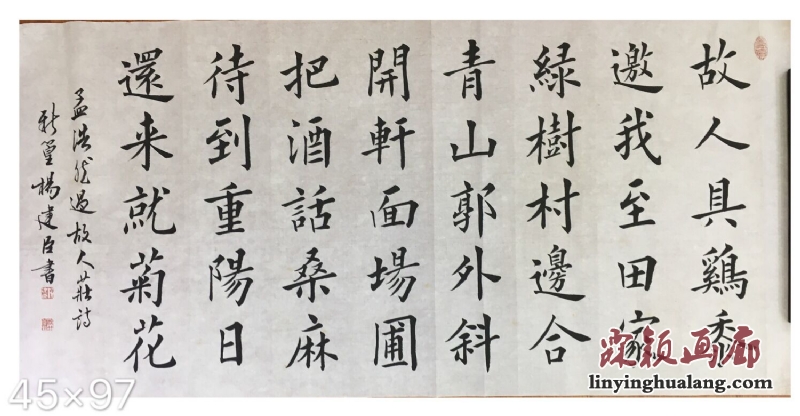 故人具鷄黍
邀我至田家
緑樹村邊合
青山郭外斜
開軒面場圃
把酒話桑麻
待到重陽日
還来就菊花
孟浩然過故人莊詩
新篁楊建臣書
45×97
霖颖画廊
linyinghualang.com